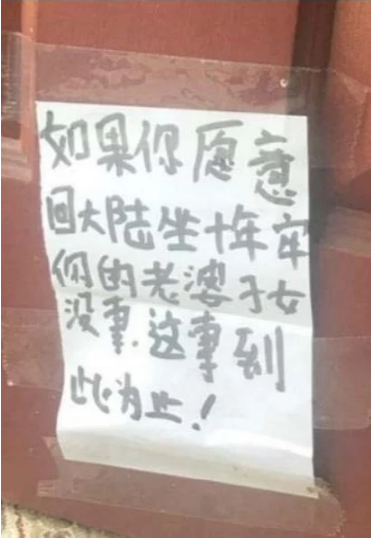 如果你愿意
回大陆坐十年牢
你的老婆子女
没事，这事到
此为止！